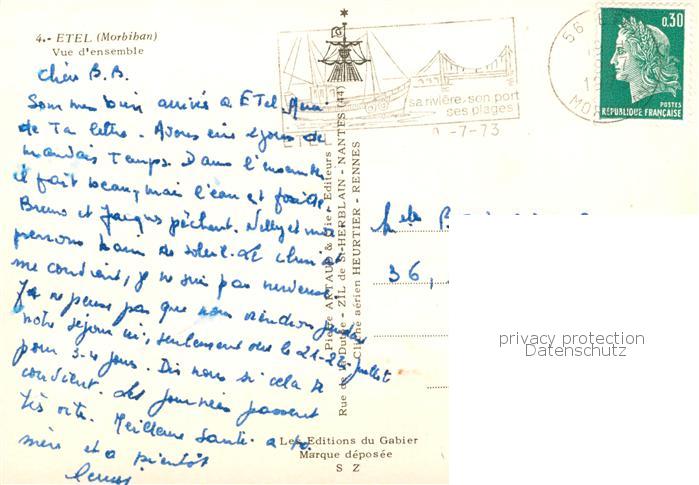 4.- ETEL (Morbihan)
Vue d'ensemble
Chère B.B.
Som me bien arrivés à ETel Merci
de Ta lettre. Avons eu 2 jours de
mauvais Temps. Dans l'ensemble
il fait beau, mais l'eau est froide.
Bruno et Jacques pêchent. Nelly et moi
prenons bain de soleil. Le climat
me convient, je ne suis pas nerveuse.
Je ne pense pas que nous viendrons
notre séjour ici, seulement vers le 21-22 juillet
pour 3-4 jours. Dis nous si cela te
convient. Les journées passent
très vite. Meilleure santé à ta
mère et à bientôt
Pierre ARTAUD & Cie - Editeurs
Rue de la Dutée - ZIL de St-HERBLAIN - NANTES (44)
Cliché aérien HEURTIER - RENNES
Les Editions du Gabier
Marque déposée
S Z
sa rivière, son port
ses plages
ETEL
-7-73
56
MOR
0,30
POSTES
RÉPUBLIQUE FRANÇAISE
36,
privacy protection
Datenschutz